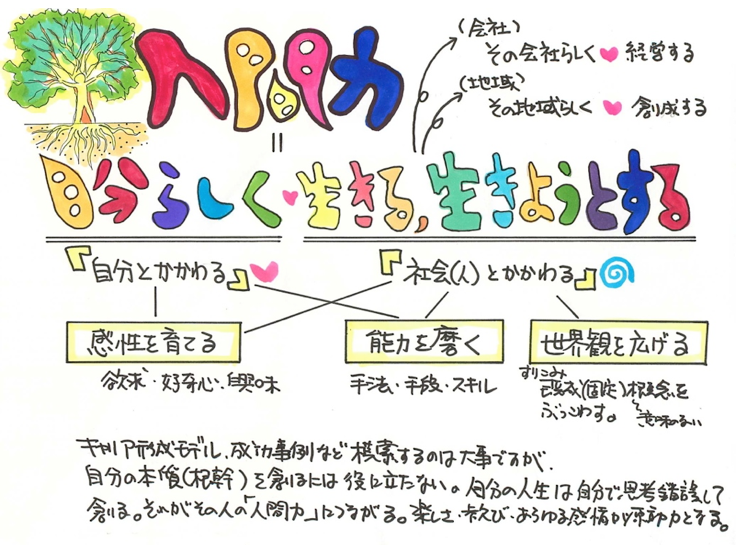 人間力
(会社)
その会社らしく♥経営する
(地域)
その地域らしく♥創成する
=
自分らしく♥生きる,生きようとする
『自分とかかわる』
『社会(人)とかかわる』
感性を育てる
能力を磨く
世界観を広げる
欲求・好奇心・興味
手法・手段・スキル
すりこみ
認識(固定)概念を
ぶっこわす。
意味のない
キャリア形成モデル、成功事例など模索するのは大事ですが、
自分の本質(根幹)を創るには役に立たない。自分の人生は自分で思考錯誤して
創る。それがその人の「人間力」につながる。楽しさ・歓び・あらゆる感情が原動力となる。